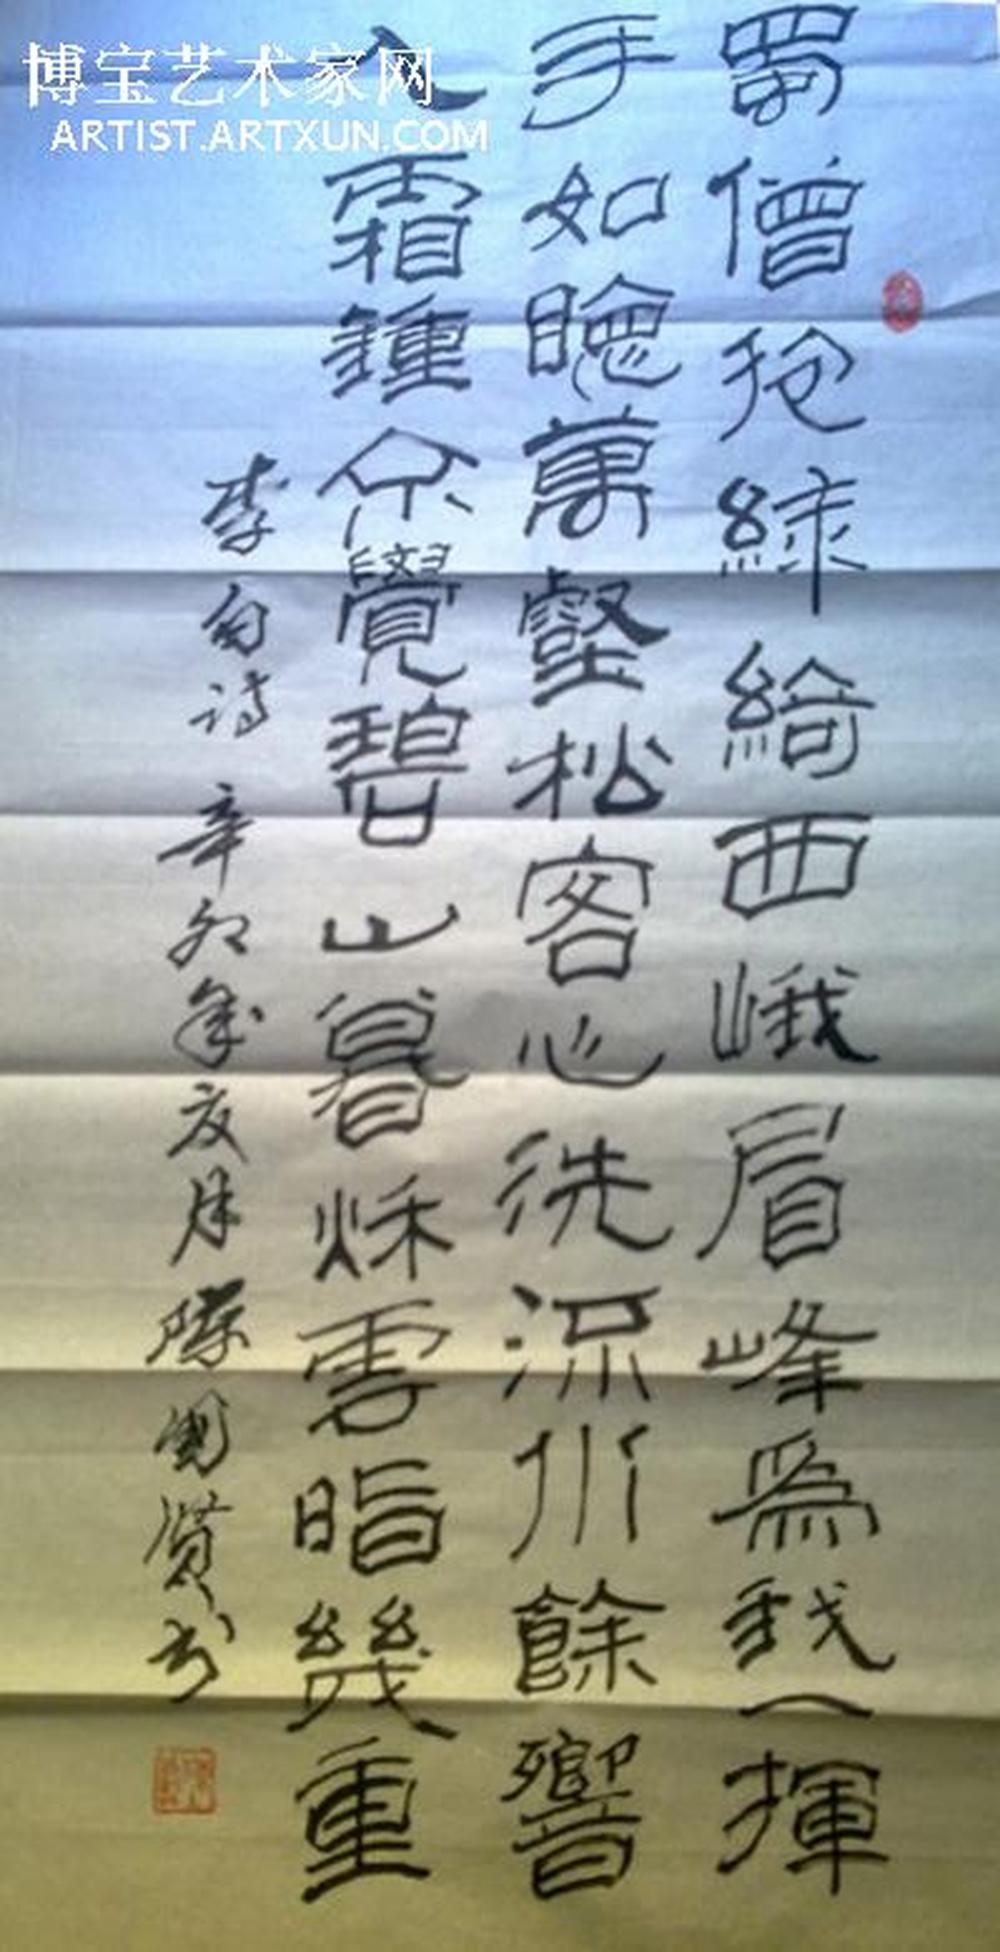 博宝艺术家网
ARTIST.ARTXUN.COM
蜀僧抱綠綺西峨眉峰爲我一揮
手如聽萬壑松客心洗流水餘響
入霜鍾不覺碧山暮秋雲暗幾重
李白诗 辛卯年夏月陳國书